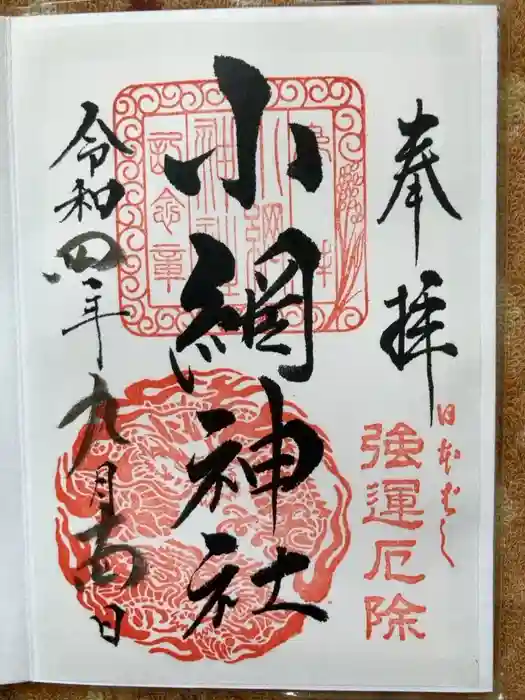 奉拝
日本ばし
強運厄除
小網神社
小網
神社
記念章
令和四年九月日